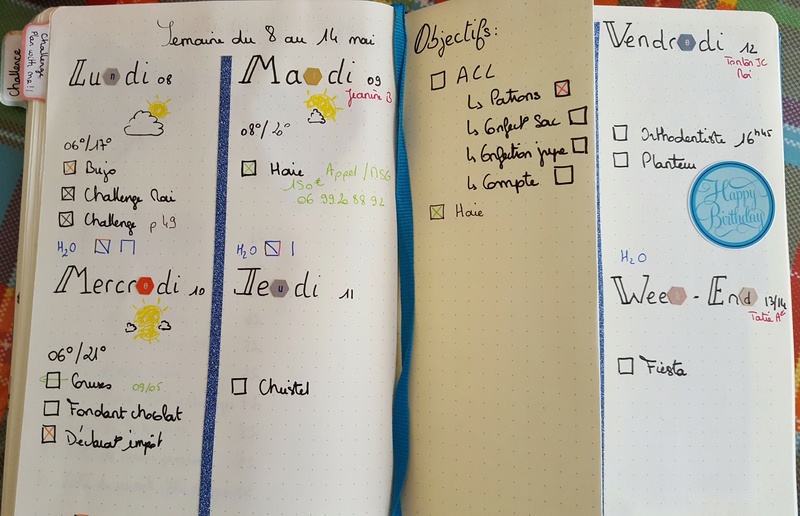 Challenge
Challenge
Plan with me!!
Semaine du 8 au 14 mai
Lundi 08
06°/17°
Bujo
Challenge Mai
Challenge p 49
H2O
Mardi 09
Jeanine B
08°/20°
Haie Appel / MSG
150€
06 99 20 88 92
H2O
Mercredi 10
06°/21°
Courses 09/05
Fondant chocolat
Déclarat° impôt
Jeudi 11
Christel
Objectifs:
ACL
↳ Patrons
↳ Confect° Sac
↳ Confection jupe
↳ Compte
Haie
Vendredi 12
Tonton JC
Moi
Orthodentiste 16h45
Planteur
Happy
Birthday
H2O
Week-End 13/14
Fiesta